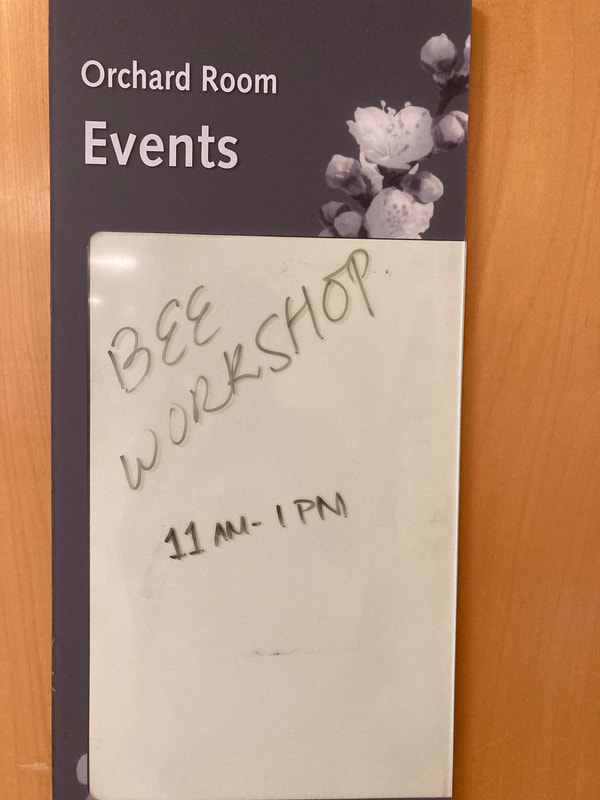 Orchard Room
Events
BEE
WORKSHOP
11 AM - 1 PM